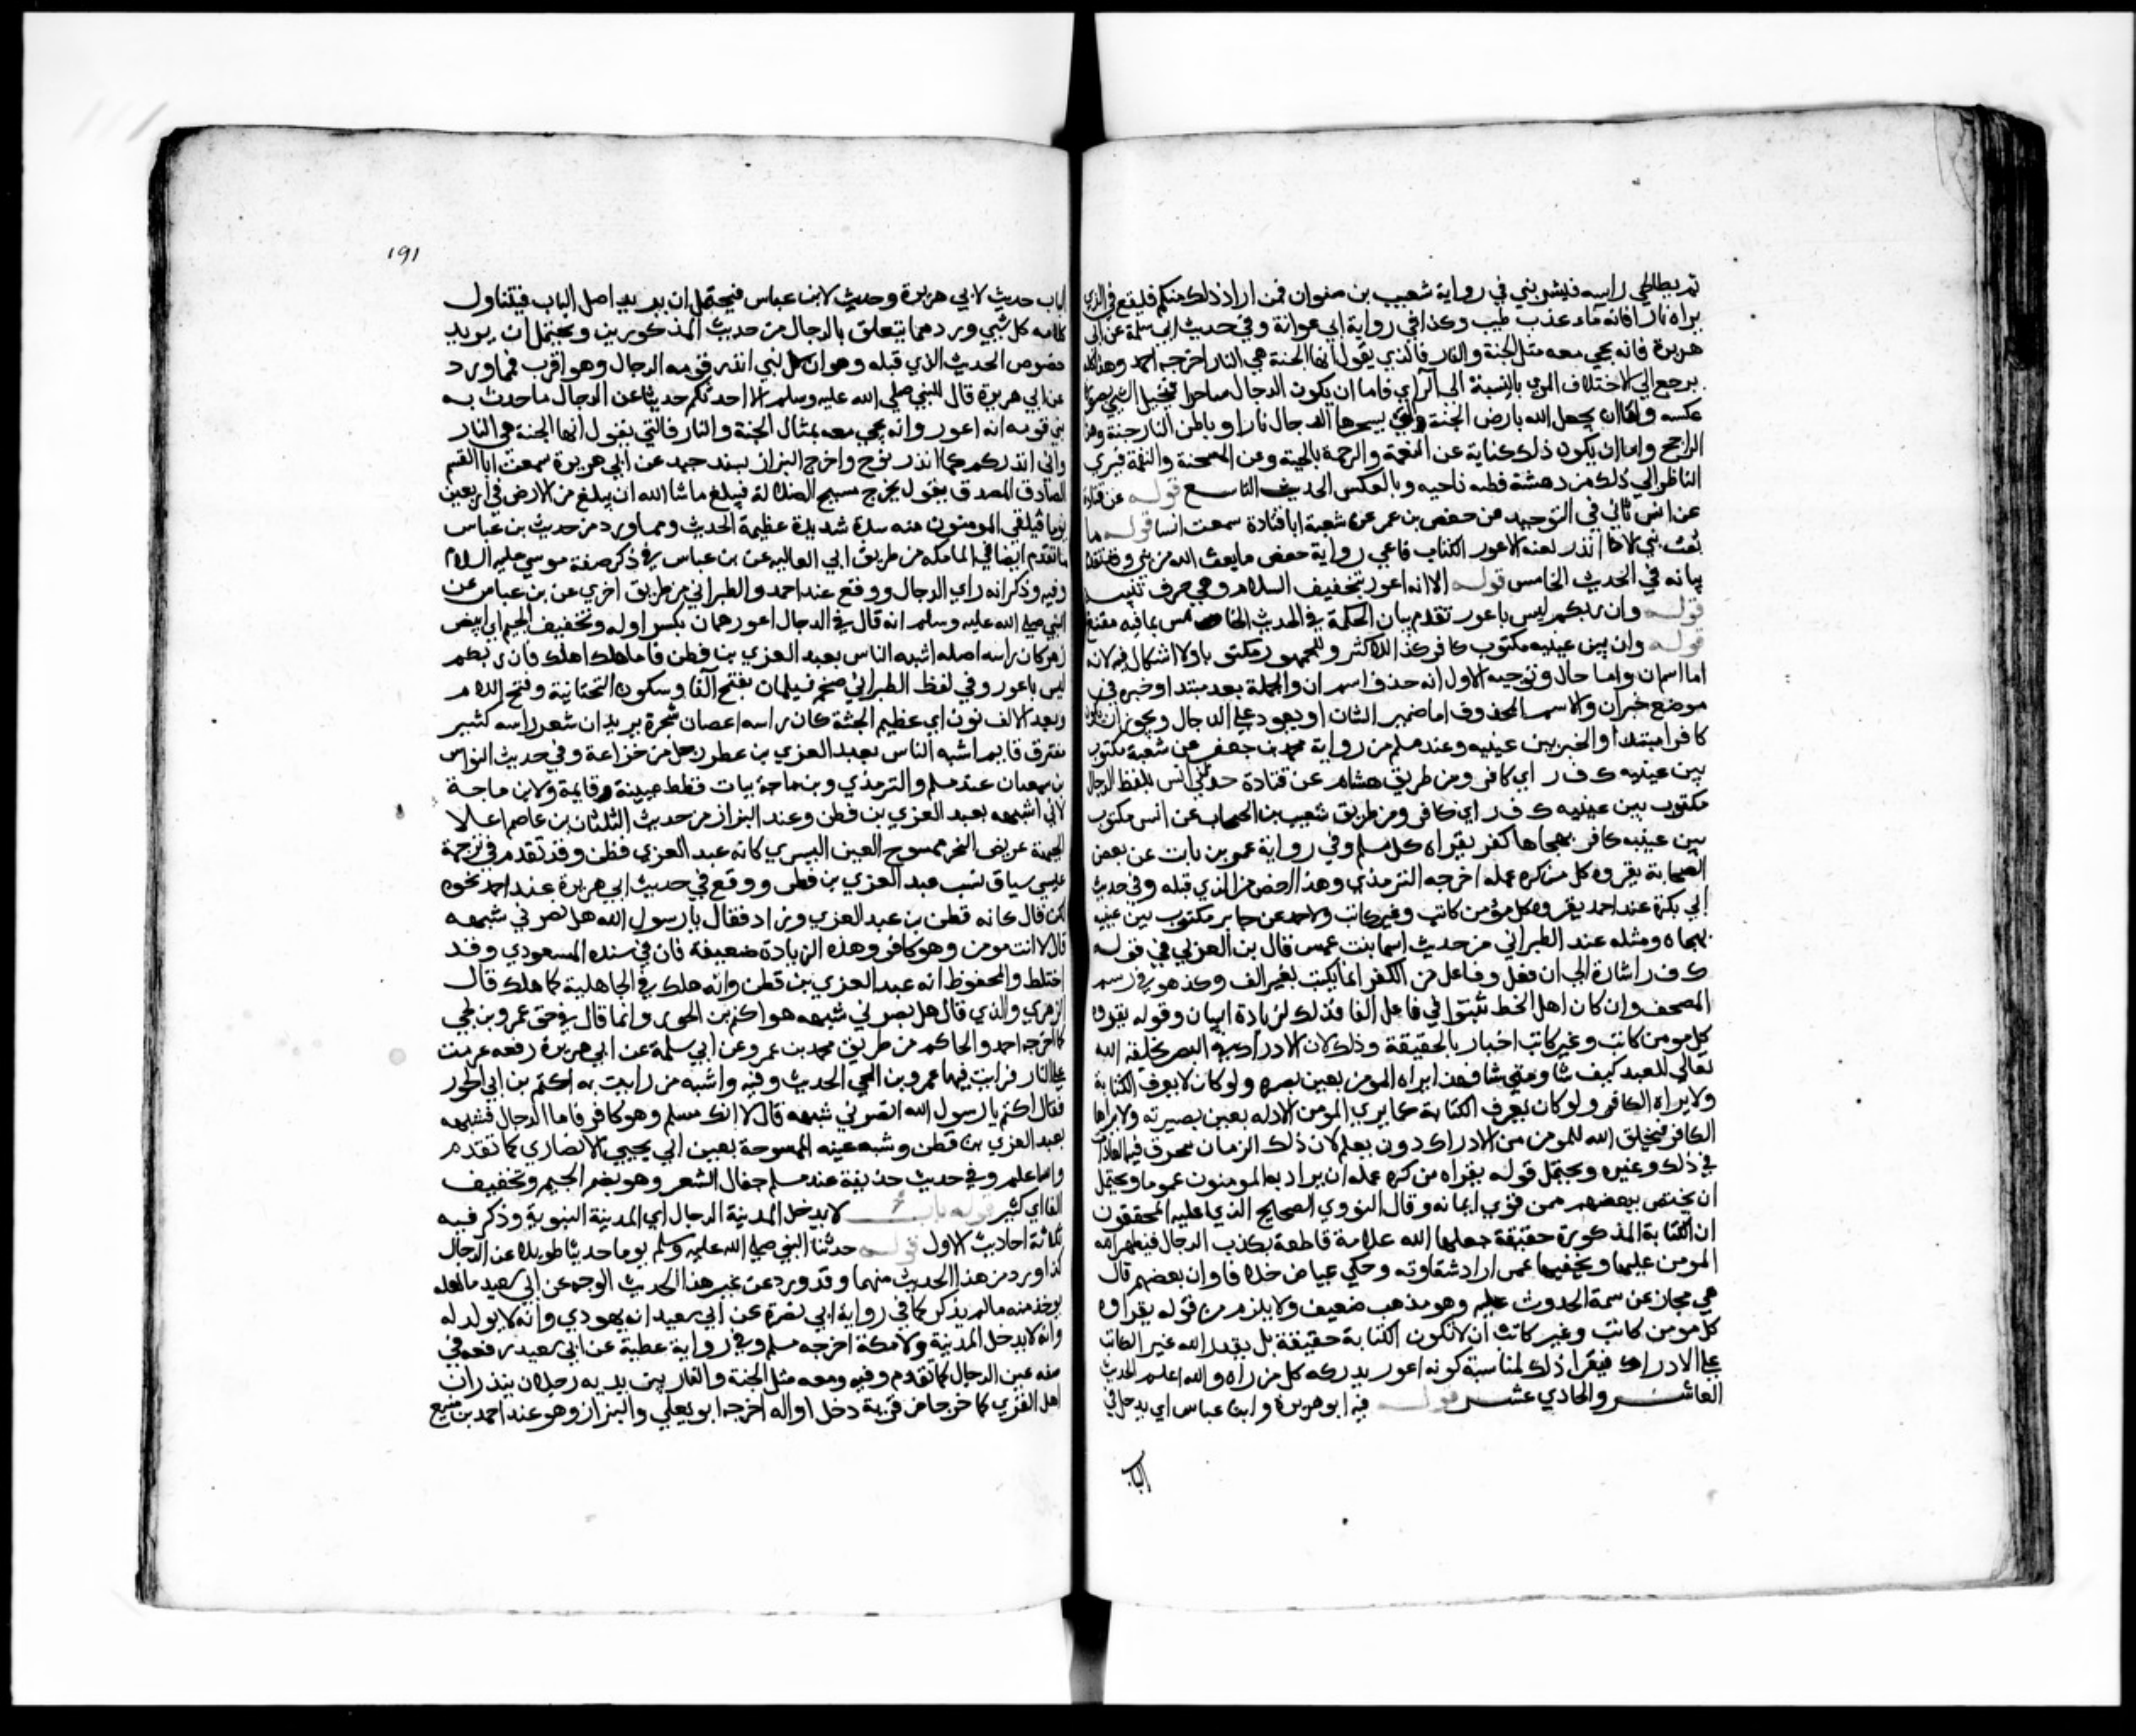 ثم يطاطي راسه فيشربني في رواية شعيب بن صفوان فمن اراد ذلك منكم فليقع في الذي
يراه نارا فانه ماء عذب طيب وكذا في رواية ابي عوانة وفي حديث ابي سلمة عن ابي
هريرة فانه يجي معه مثل الجنة والنار فالذي يقول انها الجنة هي النار اخرجه احمد وهذا كله
يرجع الي الاختلاف المري بالنسبة الي الراي فاما ان يكون الدجال ساحرا فيخيل الشي بصورة
عكسه واما ان يجعل الله بارض الجنة التي يسحرها الدجال نارا وباطن النار جنة وهو
الراجح واما ان يكون ذلك كناية عن النعمة والرحمة بالجنة وعن المحنة والنقمة فيري
الناظر الي ذلك من دهشة فطنه ناحيه وبالعكس الحديث التاسع قوله عن قتادة
عن انس ثاني في التوحيد من حفص بن عمر عن شعبة ابا قتادة سمعت انسا قوله ما
بعث نبي الا انذر امته الاعور الكذاب فاعي رواية حفص مابعث الله من نبي وقد تقدم
بيانه في الحديث الخامس قوله الا انه اعور بتخفيف السلام وهي حرف تنبيه
قوله وان ربكم ليس باعور تقدم بيان الحكمة في الحديث الخامس بما فيه مقنع
قوله وان بين عينيه مكتوب كافر كذا للاكثر وللجمهور مكتوبا ولا اشكال فيه لانه
اما اسم ان واما حال وتوجيه الاول انه حذف اسم ان والجملة بعد مبتدا وخبره في
موضع خبر ان والاسم المحذوف اما ضمير الشان او يعود علي الدجال ويجوز ان يكون
كافر مبتدا والخبر بين عينيه وعند مسلم من رواية محمد بن جعفر عن شعبة مكتوب
بين عينيه ك ف ر اي كافر ومن طريق هشام عن قتادة حدثني انس بلفظ الدجال
مكتوب بين عينيه ك ف ر اي كافر ومن طريق شعيب بن الحبحاب عن انس مكتوب
بين عينيه كافر بهجاها كفر يقراه كل مسلم وفي رواية عمر بن ثابت عن بعض
الصحابة يقروه كل من كره عمله اخرجه الترمذي وهذا اخص من الذي قبله وفي حديث
ابي بكرة عند احمد يقروه كل مؤمن كاتب وغير كاتب ولاحمد عن جابر مكتوب بين عينيه
بهجاه ومثله عند الطبراني من حديث اسما بنت عميس قال بن العربي في قوله
ك ف ر اشارة الي ان فعل وفاعل من الكفر انما يكتب بغير الف وكذ هو في رسم
المصحف وان كان اهل الخط ثبتوا في فاعل الفا فذلك لزيادة البيان وقوله يقروه
كل مومن كاتب وغير كاتب اخبار بالحقيقة وذلك لان الادراك في البصر يخلقه الله
تعالي للعبد كيف شا ومتي شا فهذا يراه المومن بعين بصره ولو كان لا يعرف الكتابة
ولا يراه الكافر ولو كان يعرف الكتابة كما يري المومن الادله بعين بصيرته ولا يراها
الكافر فيخلق الله للمومن من الادراك دون بعلم لان ذلك الزمان تنحرق فيه العادات
في ذلك وغيره ويحتمل قوله يقراه من كره عمله ان يراد به المومنون عموما ويحتمل
ان يختص ببعضهم ممن قوي ايمانه وقال النووي الصحيح الذي عليه المحققون
ان الكتابة المذكورة حقيقة جعلها الله علامة قاطعة بكذب الدجال فيظهر الله
المومن عليها ويخفيها عمن اراد شقاوته وحكي عياض خلافا وان بعضهم قال
هي مجاز عن سمة الحدوث عليه وهو مذهب ضعيف ولا يلزم من قوله يقراه
كل مومن كاتب وغير كاتب ان لا تكون الكتابة حقيقة بل يقدر الله غير الكاتب
علي الادراك فيقرا ذلك لمناسبة كونه اعور يدركه كل من راه والله اعلم الحديث
العاشر والحادي عشر قوله فيه ابو هريرة وابن عباس اي يدخل في
الباب
191
الباب حديث لابي هريرة وحديث لابن عباس فيحتمل ان يريد اصل الباب فيتناول
كلامه كل شي ورد مما يتعلق بالدجال من حديث المذكورين ويحتمل ان يريد
خصوص الحديث الذي قبله وهو ان كل نبي انذر قومه الدجال وهو اقرب فمما ورد
عن ابي هريرة قال النبي صلي الله عليه وسلم الا احدثكم حديثا عن الدجال ما حدث به
نبي قومه انه اعور وانه يجي معه بمثال الجنة والنار فالتي يقول انها الجنة هي النار
واني انذركم كما انذر نوح واخرج البزار بسند جيد عن ابي هريرة سمعت ابا القسم
الصادق المصدق يقول يخرج مسيح الضلالة فيبلغ ما شا الله ان يبلغ من الارض في اربعين
يوما فيلقي المومنون منه شدة شديدة عظيمة الحديث ومما ورد من حديث بن عباس
ما تقدم ايضا في الملائكة من طريق ابي العالية عن بن عباس في ذكر صفة موسي عليه السلام
وفيه وذكر انه راي الدجال ووقع عند احمد والطبراني من طريق اخري عن بن عباس عن
النبي صلي الله عليه وسلم انه قال في الدجال اعور همان بكسر اوله وتخفيف الجيم اي ابيض
زهر كان راسه اصله اشبه الناس بعبد العزي بن قطن فاما هلك اهلك فان ربكم
ليس باعور وفي لفظ الطبراني ضخم فيلمان بفتح الفا وسكون التحتانية وفتح اللام
وبعد الالف نون اي عظيم الجثة كان راسه اعصان شجرة يريد ان شعر راسه كثير
متفرق قايم اشبه الناس بعبد العزي بن عطن رجل من خزاعة وفي حديث النواس
بن سمعان عند مسلم والترمذي وبن ماجة شاب قطط عينه قايمة ولابن ماجة
كاني اشبهه بعبد العزي بن قطن وعند البزار من حديث الفلتان بن عاصم اجلا
الجبهة عريض النحر ممسوح العين اليسري كانه عبد العزي قطن وقد تقدم في ترجمة
عيسي سياق نسب عبد العزي بن قطن ووقع في حديث ابي هريرة عند احمد نحوه
لكن قال كانه قطن بن عبد العزي وزاد فقال يا رسول الله هل يضرني شبهه
قال لا انت مومن وهو كافر وهذه الزيادة ضعيفة فان في سنده المسعودي وقد
اختلط والمحفوظ انه عبد العزي بن قطن وانه هلك في الجاهلية كما هلك قال
الزهري والذي قال هل يضرني شبهه هو اكثم بن الجون وانما قال في حق عمرو بن لحي
كما اخرجه احمد والحاكم من طريق محمد بن عمرو عن ابي سلمة عن ابي هريرة رفعه عرضت
علي النار فرايت فيها عمرو بن لحي الحديث وفيه واشبه من رايت به اكثم بن ابي الجون
فقال اكثم يا رسول الله ايضرني شبهه قال لا انك مسلم وهو كافر فاما الدجال فشبهه
بعبد العزي بن قطن وشبه عينه الممسوحة بعين ابي يحيي الانصاري كما تقدم
والله اعلم وفي حديث حذيفة عند مسلم جفال الشعر وهو بضم الجيم وتخفيف
الفا اي كثير قوله باب لا يدخل المدينة الدجال اي المدينة النبوية وذكر فيه
ثلاثة احاديث الاول قوله حدثنا النبي صلي الله عليه وسلم يوما حديثا طويلا عن الدجال
كذا ورد من هذا الحديث منهما وقد ورد عن غير هذا الحديث الوجه عن ابي سعيد ما لعله
يوخذ منه ما لم يذكر كما في رواية ابي نضرة عن ابي سعيد انه يهودي وانه لا يولد له
وانه لا يدخل المدينة ولا مكة اخرجه مسلم وفي رواية عطية عن ابي سعيد رفعه في
صفه عين الدجال كما تقدم وفيه ومعه مثل الجنة والنار بين يديه رجلان ينذران
اهل القري كما خرجا من قرية دخل اواله اخرجه ابو يعلي والبزار وهو عند احمد بن منيع